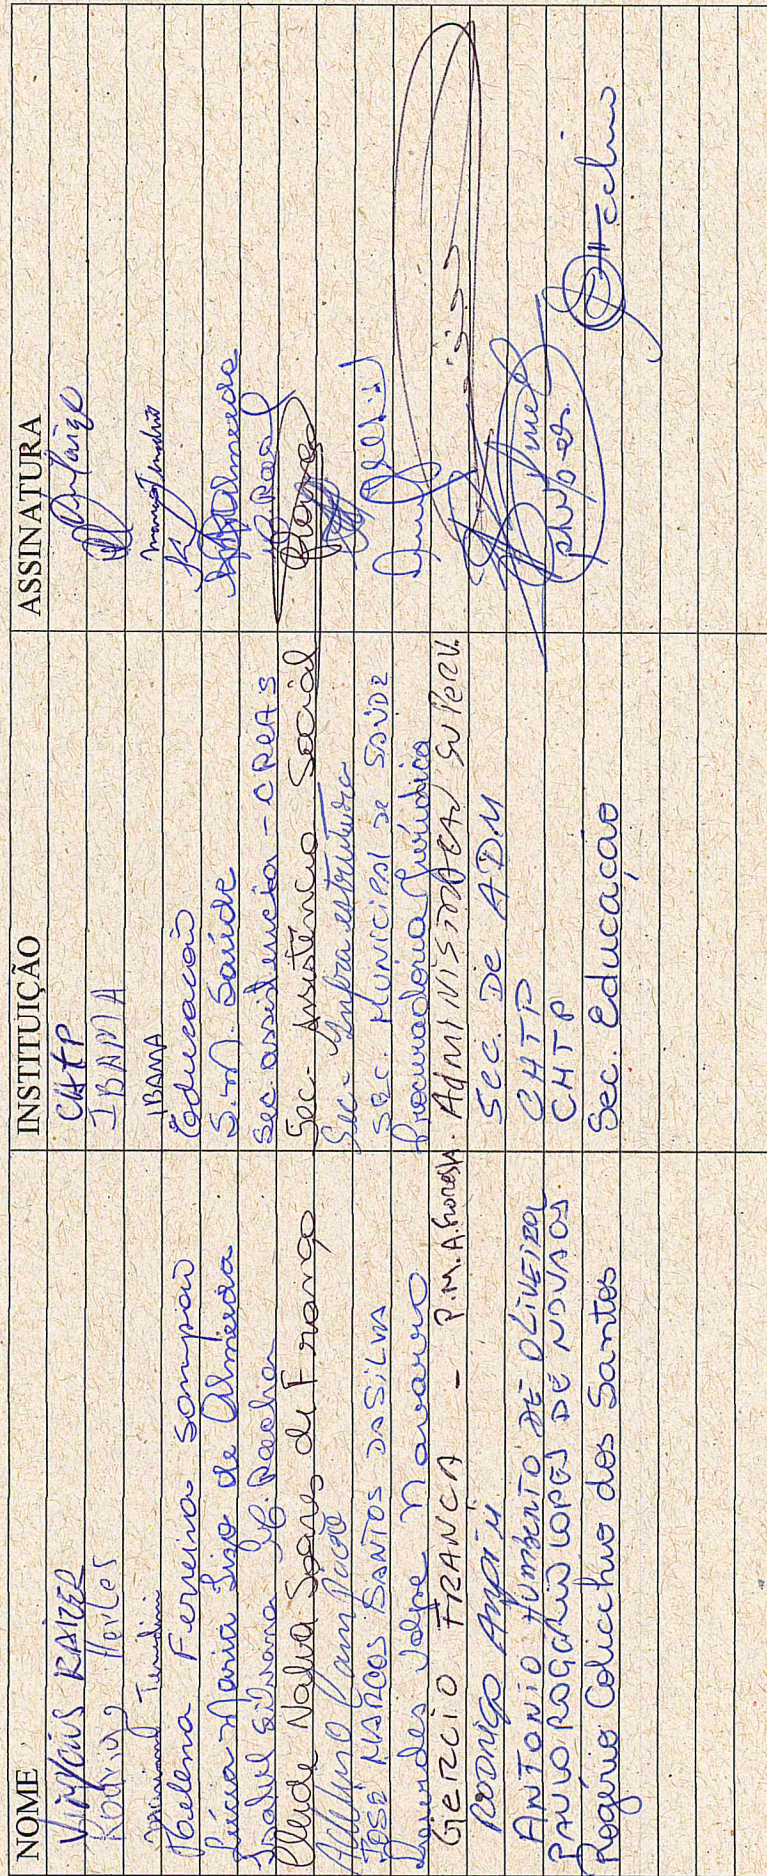 NOME INSTITUIÇÃO ASSINATURA
VINICIUS RAIZER CHTP
Rodrigo Herles IBAMA
IBAMA
Helena Ferreira Sampaio Educação
Lúcia Maria Lizo de Almeida S.M. Saúde Almeida
Isabel Silvana M. Rocha Sec. assistencia - CREAS
Cleide Nalva Soares de França Sec. Assistência Social
Sec. Infra estrutura
JOSÉ MARCOS SANTOS DA SILVA SEC. MUNICIPAL DE SAÚDE
Lourdes Volpe Navarro Procuradoria Jurídica
GERCIO FRANCA - P.M.A. Floresta. Administração
RODRIGO Sec. De ADM
ANTONIO HUMBERTO DE OLIVEIRA CHTP
PAULO ROGÉRIO LOPES DE NOVAES CHTP
Rogério Colicchio dos Santos Sec. Educação